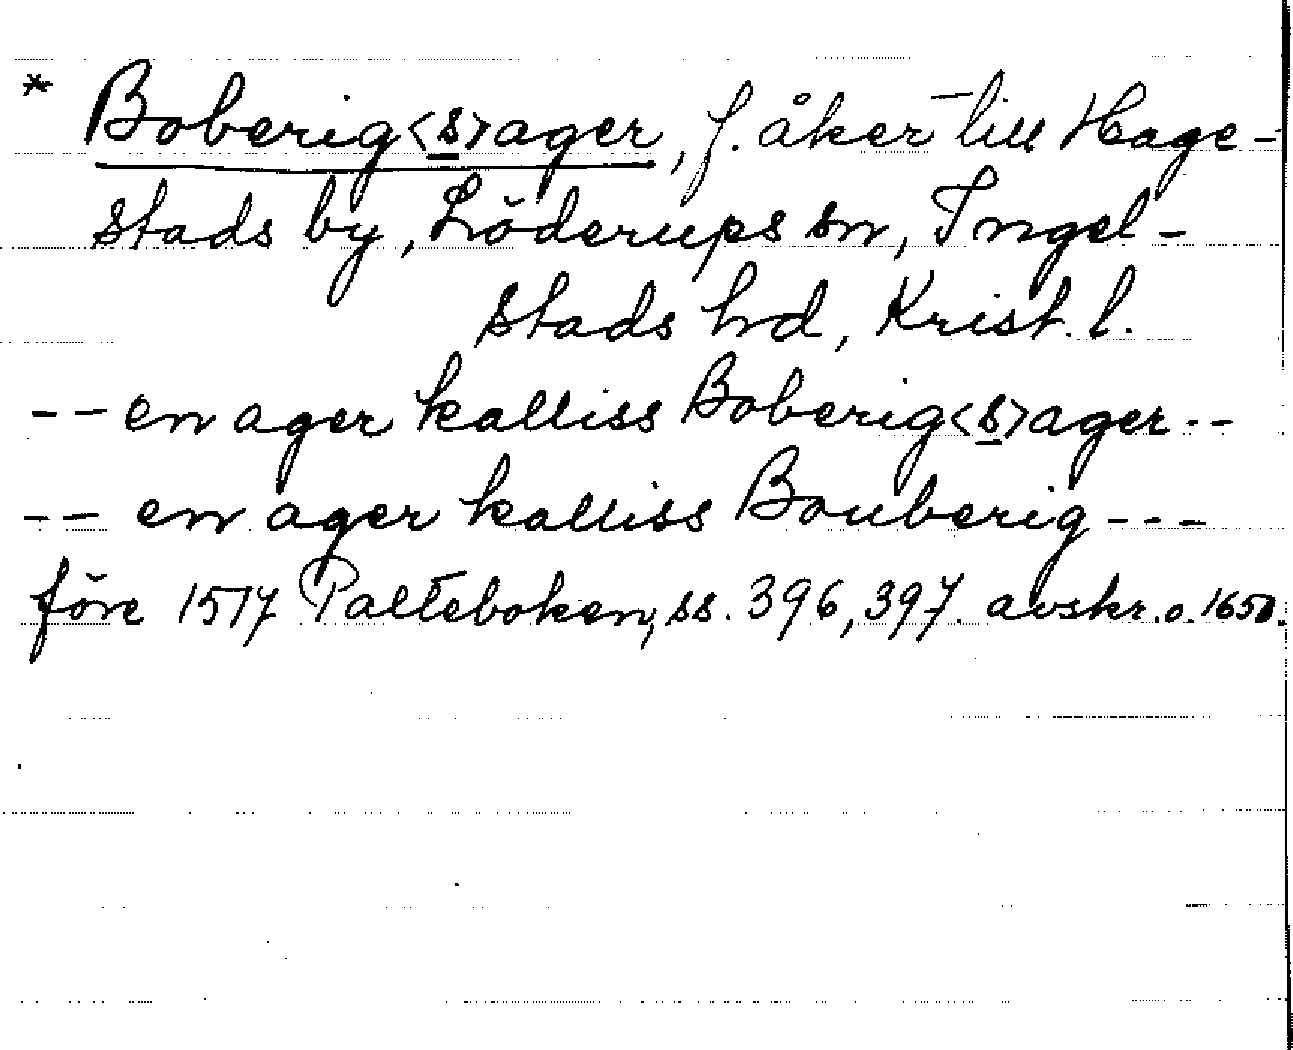 * Boberig<s>ager, f. åker till Hage-
stads by, Löderups sn, Ingel-
stads hrd, Krist. l.
-- en ager kalliss Boberig<s>ager --
-- en ager kalliss Bouberig ---
före 1517 Palteboken, ss. 396, 397. avskr. o. 1650.